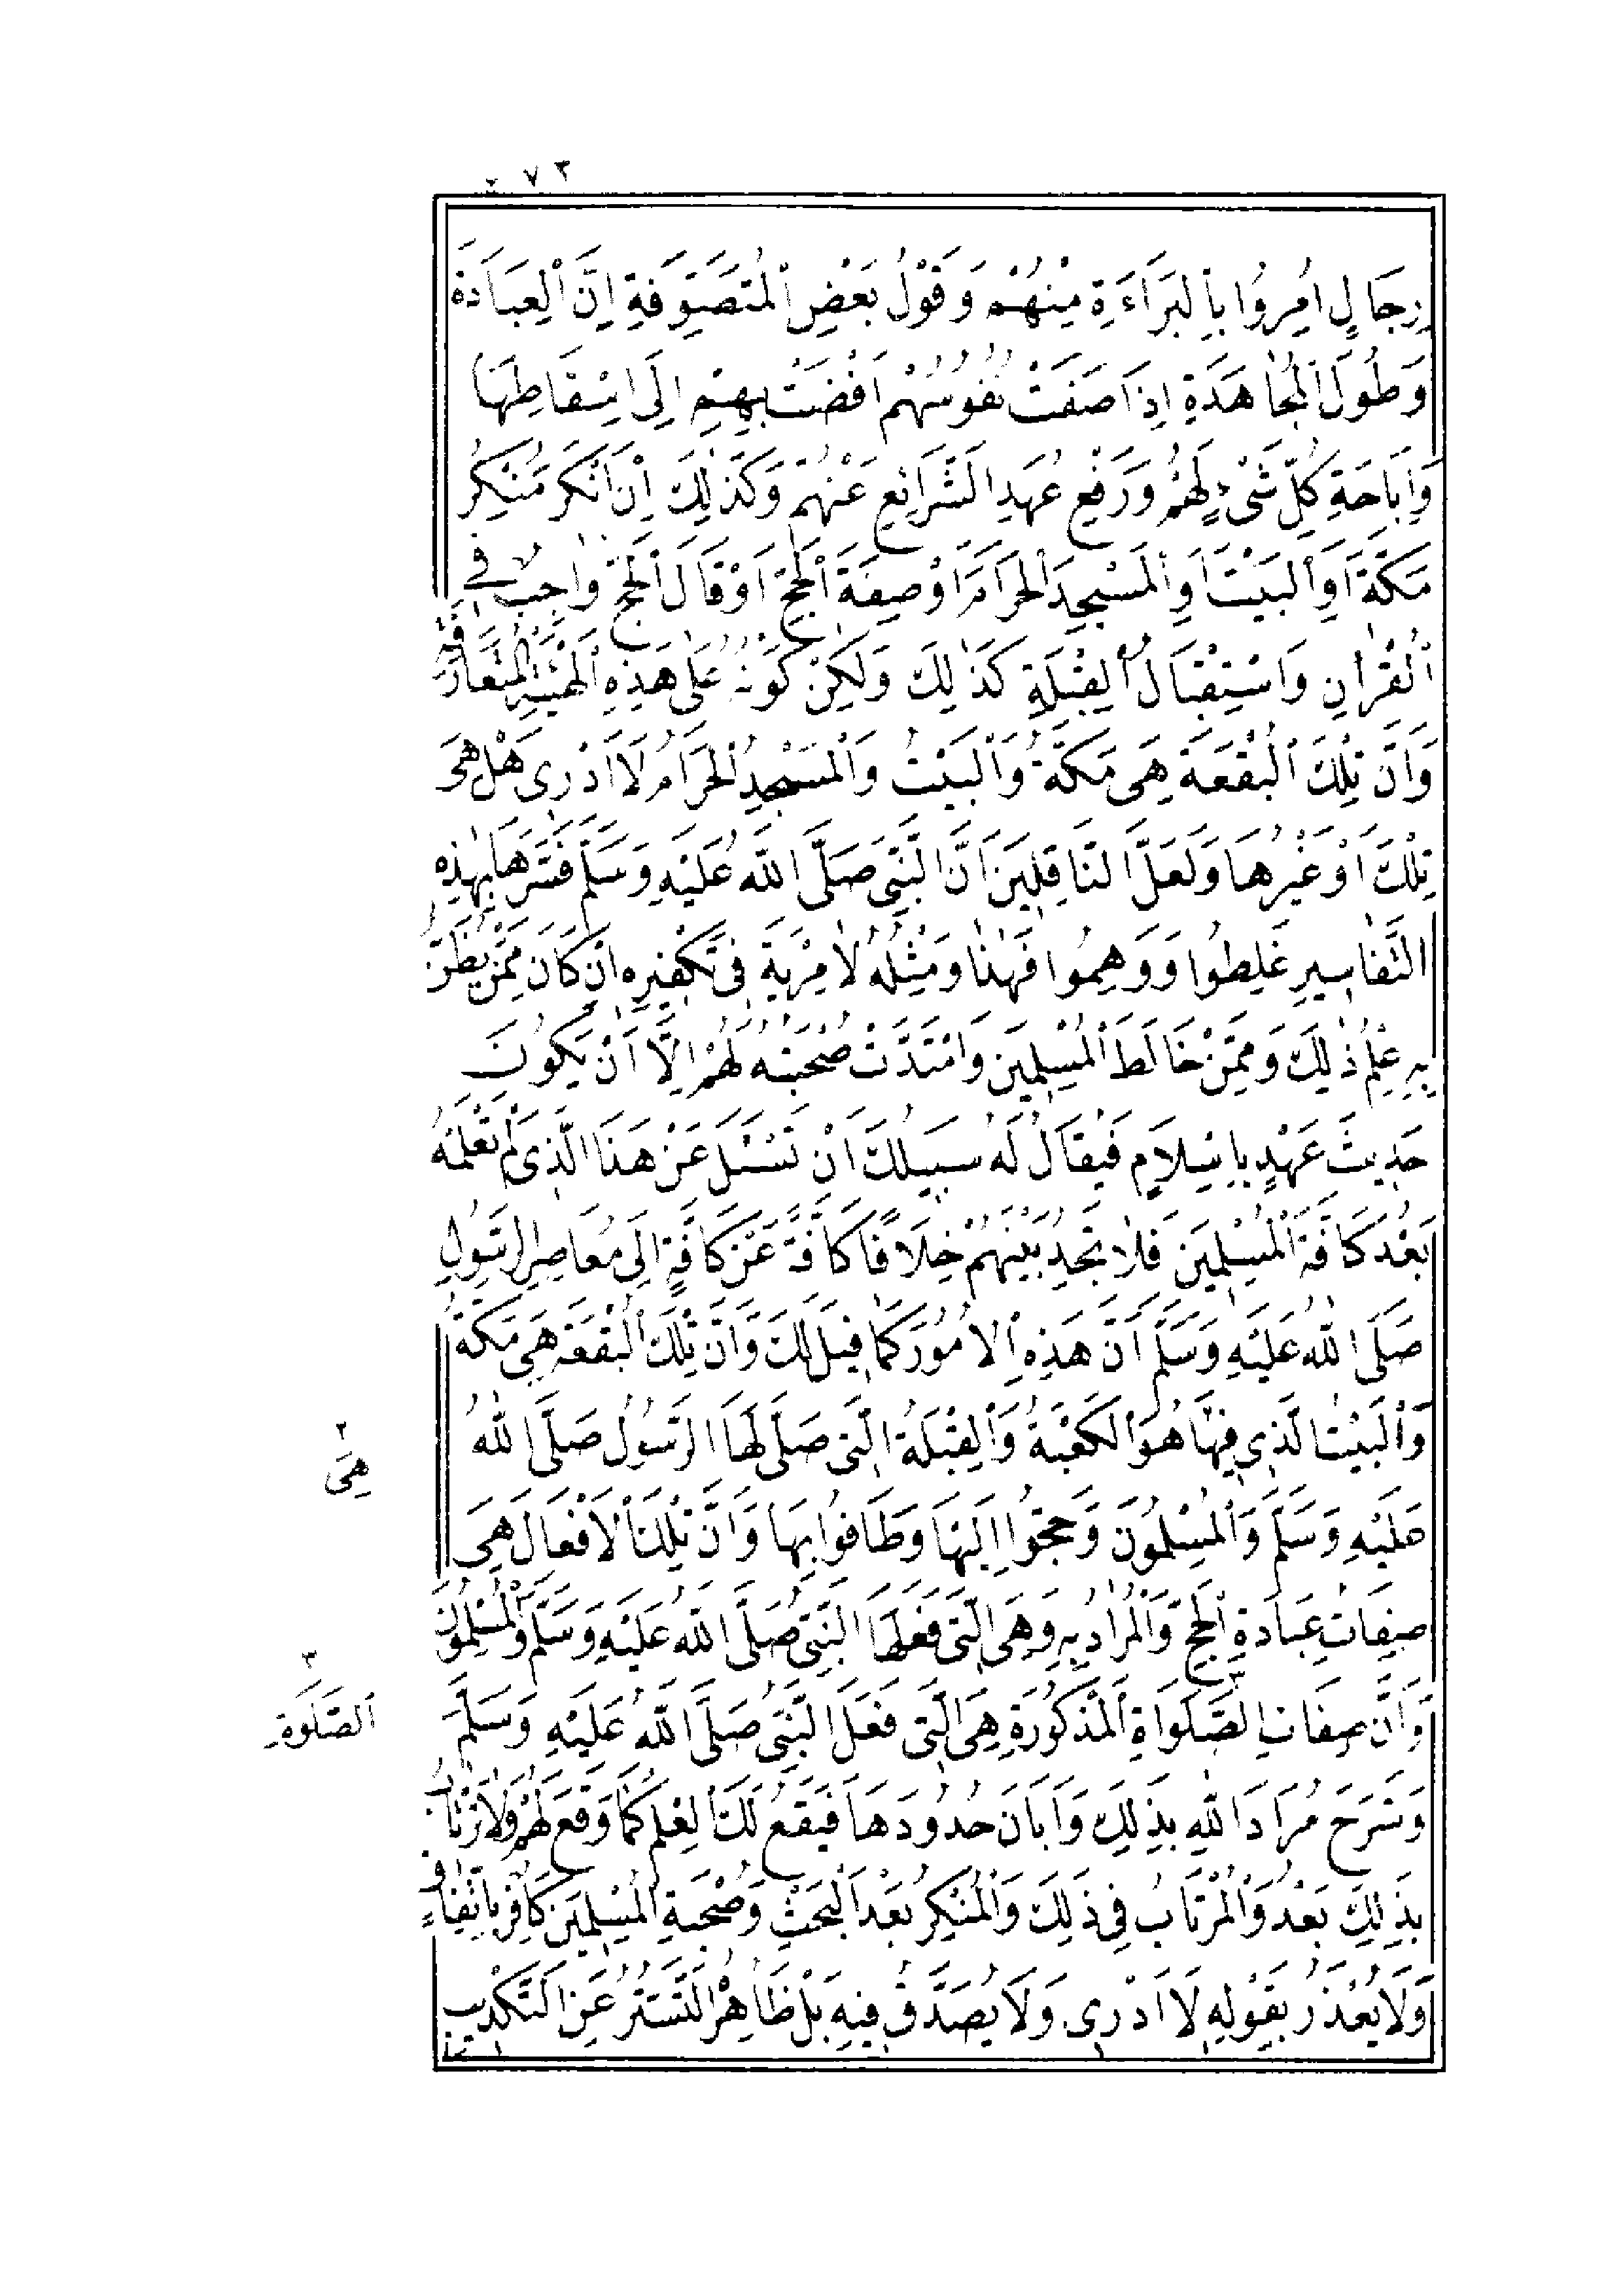 ٢٧٣
رِجَالٍ اُمِرُوا بِالْبَرَاءَةِ مِنْهُمْ وَقَوْلُ بَعْضِ الْمُتَصَوِّفَةِ اِنَّ الْعِبَادَةَ
وَطُولَ الْمُجَاهَدَةِ اِذَا صَفَتْ نُفُوسُهُمْ اَفْضَتْ بِهِمْ اِلَى اِسْقَاطِهَا
وَاِبَاحَةِ كُلِّ شَىْءٍ لَهُمْ وَرَفْعِ عُهَدِ الشَّرَائِعِ عَنْهُمْ وَكَذٰلِكَ اِنْ اَنْكَرَ مُنْكِرٌ
مَكَّةَ اَوِ الْبَيْتَ اَوِ الْمَسْجِدَ الْحَرَامَ اَوْ صِفَةَ الْحَجِّ اَوْ قَالَ الْحَجُّ وَاجِبٌ فِى
الْقُرْاٰنِ وَاسْتِقْبَالُ الْقِبْلَةِ كَذٰلِكَ وَلٰكِنْ كَوْنُهُ عَلَى هَذِهِ الْهَيْئَةِ الْمُتَعَارَفَةِ
وَاَنَّ تِلْكَ الْبُقْعَةَ هِىَ مَكَّةُ وَالْبَيْتُ وَالْمَسْجِدُ الْحَرَامُ لَا اَدْرِى هَلْ هِىَ
تِلْكَ اَوْ غَيْرُهَا وَلَعَلَّ النَّاقِلِينَ اَنَّ النَّبِىَّ صَلَّى اللّٰهُ عَلَيْهِ وَسَلَّمَ فَسَّرَهَا بِهٰذِهِ
التَّفَاسِيرِ غَلِطُوا وَوَهِمُوا فَهٰذَا وَمِثْلُهُ لَا مِرْيَةَ فِى تَكْفِيرِهِ اِنْ كَانَ مِمَّنْ يُظَنُّ
بِهِ عِلْمُ ذٰلِكَ وَمِمَّنْ خَالَطَ الْمُسْلِمِينَ وَامْتَدَّتْ صُحْبَتُهُ لَهُمْ اِلَّا اَنْ يَكُونَ
حَدِيثَ عَهْدٍ بِاِسْلَامٍ فَيُقَالُ لَهُ سَبِيلُكَ اَنْ تَسْئَلَ عَنْ هَذَا الَّذِى لَمْ تَعْلَمْهُ
بَعْدُ كَافَّةَ الْمُسْلِمِينَ فَلَا تَجِدُ بَيْنَهُمْ خِلَافًا كَافَّةً عَنْ كَافَّةٍ اِلَى مُعَاصِرِ الرَّسُولِ
صَلَّى اللّٰهُ عَلَيْهِ وَسَلَّمَ اَنَّ هَذِهِ الْاُمُورَ كَمَا قِيلَ لَكَ وَاَنَّ تِلْكَ الْبُقْعَةَ هِىَ مَكَّةُ
وَالْبَيْتُ الَّذِى فِيهَا هُوَ الْكَعْبَةُ وَالْقِبْلَةُ الَّتِى صَلَّى لَهَا الرَّسُولُ صَلَّى اللّٰهُ
عَلَيْهِ وَسَلَّمَ وَالْمُسْلِمُونَ وَحَجُّوا اِلَيْهَا وَطَافُوا بِهَا وَاَنَّ تِلْكَ الْاَفْعَالَ هِىَ
صِفَاتُ عِبَادَةِ الْحَجِّ وَالْمُرَادُ بِهِ وَهِىَ الَّتِى فَعَلَهَا النَّبِىُّ صَلَّى اللّٰهُ عَلَيْهِ وَسَلَّمَ وَالْمُسْلِمُونَ
وَاَنَّ صِفَاتِ الصَّلَوَاةِ الْمَذْكُورَةِ هِىَ الَّتِى فَعَلَ النَّبِىُّ صَلَّى اللّٰهُ عَلَيْهِ وَسَلَّمَ
وَشَرَحَ مُرَادَ اللّٰهِ بِذٰلِكَ وَاَبَانَ حُدُودَهَا فَيَقَعُ لَكَ الْعِلْمُ كَمَا وَقَعَ لَهُمْ وَلَا تَرْتَابُ
بِذٰلِكَ بَعْدُ وَالْمُرْتَابُ فِى ذٰلِكَ وَالْمُنْكِرُ بَعْدَ الْبَحْثِ وَصُحْبَةِ الْمُسْلِمِينَ كَافِرٌ بِاتِّفَاقٍ
وَلَا يُعْذَرُ بِقَوْلِهِ لَا اَدْرِى وَلَا يُصَدَّقُ فِيهِ بَلْ ظَاهِرُهُ التَّسَتُّرُ عَنِ التَّكْذِيبِ
٢
هِىَ
٣
الصَّلَوةِ